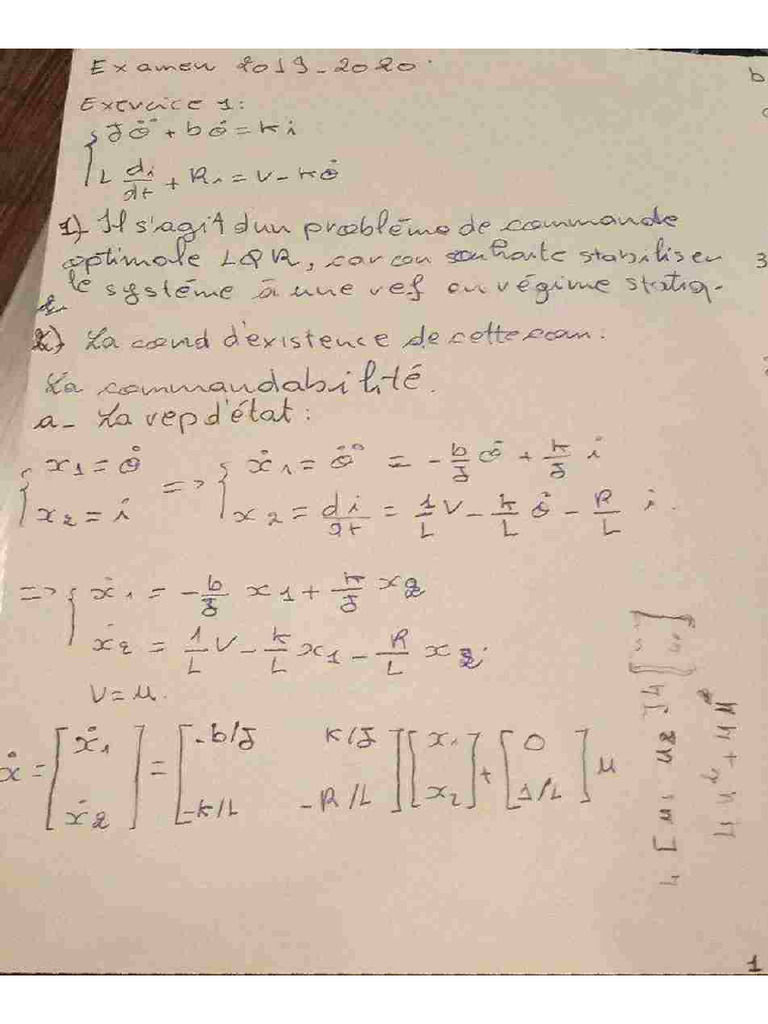 Examen 2019-2020.
Exercice 1:
{ J θ̈ + b θ̇ = K i
L di/dt + R i = V - K θ̇
1) Il s'agit d'un problème de commande
optimale LQR, car on souhaite stabiliser
le système à une ref en régime statiq.
2) La cond d'existence de cette com:
La commandabilité.
a- La rep d'état:
{ x1 = θ̇ => { ẋ1 = θ̈ = -b/J θ̇ + K/J i
x2 = i ẋ2 = di/dt = 1/L V - K/L θ̇ - R/L i.
=> { ẋ1 = -b/J x1 + K/J x2
ẋ2 = 1/L V - K/L x1 - R/L x2.
V = u.
ẋ = [ẋ1 ẋ2] = [-b/J K/J -K/L -R/L] [x1 x2] + [0 1/L] u
b
3
1